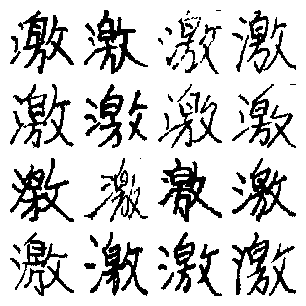 激激激激
激激激激
激激激激
激激激激